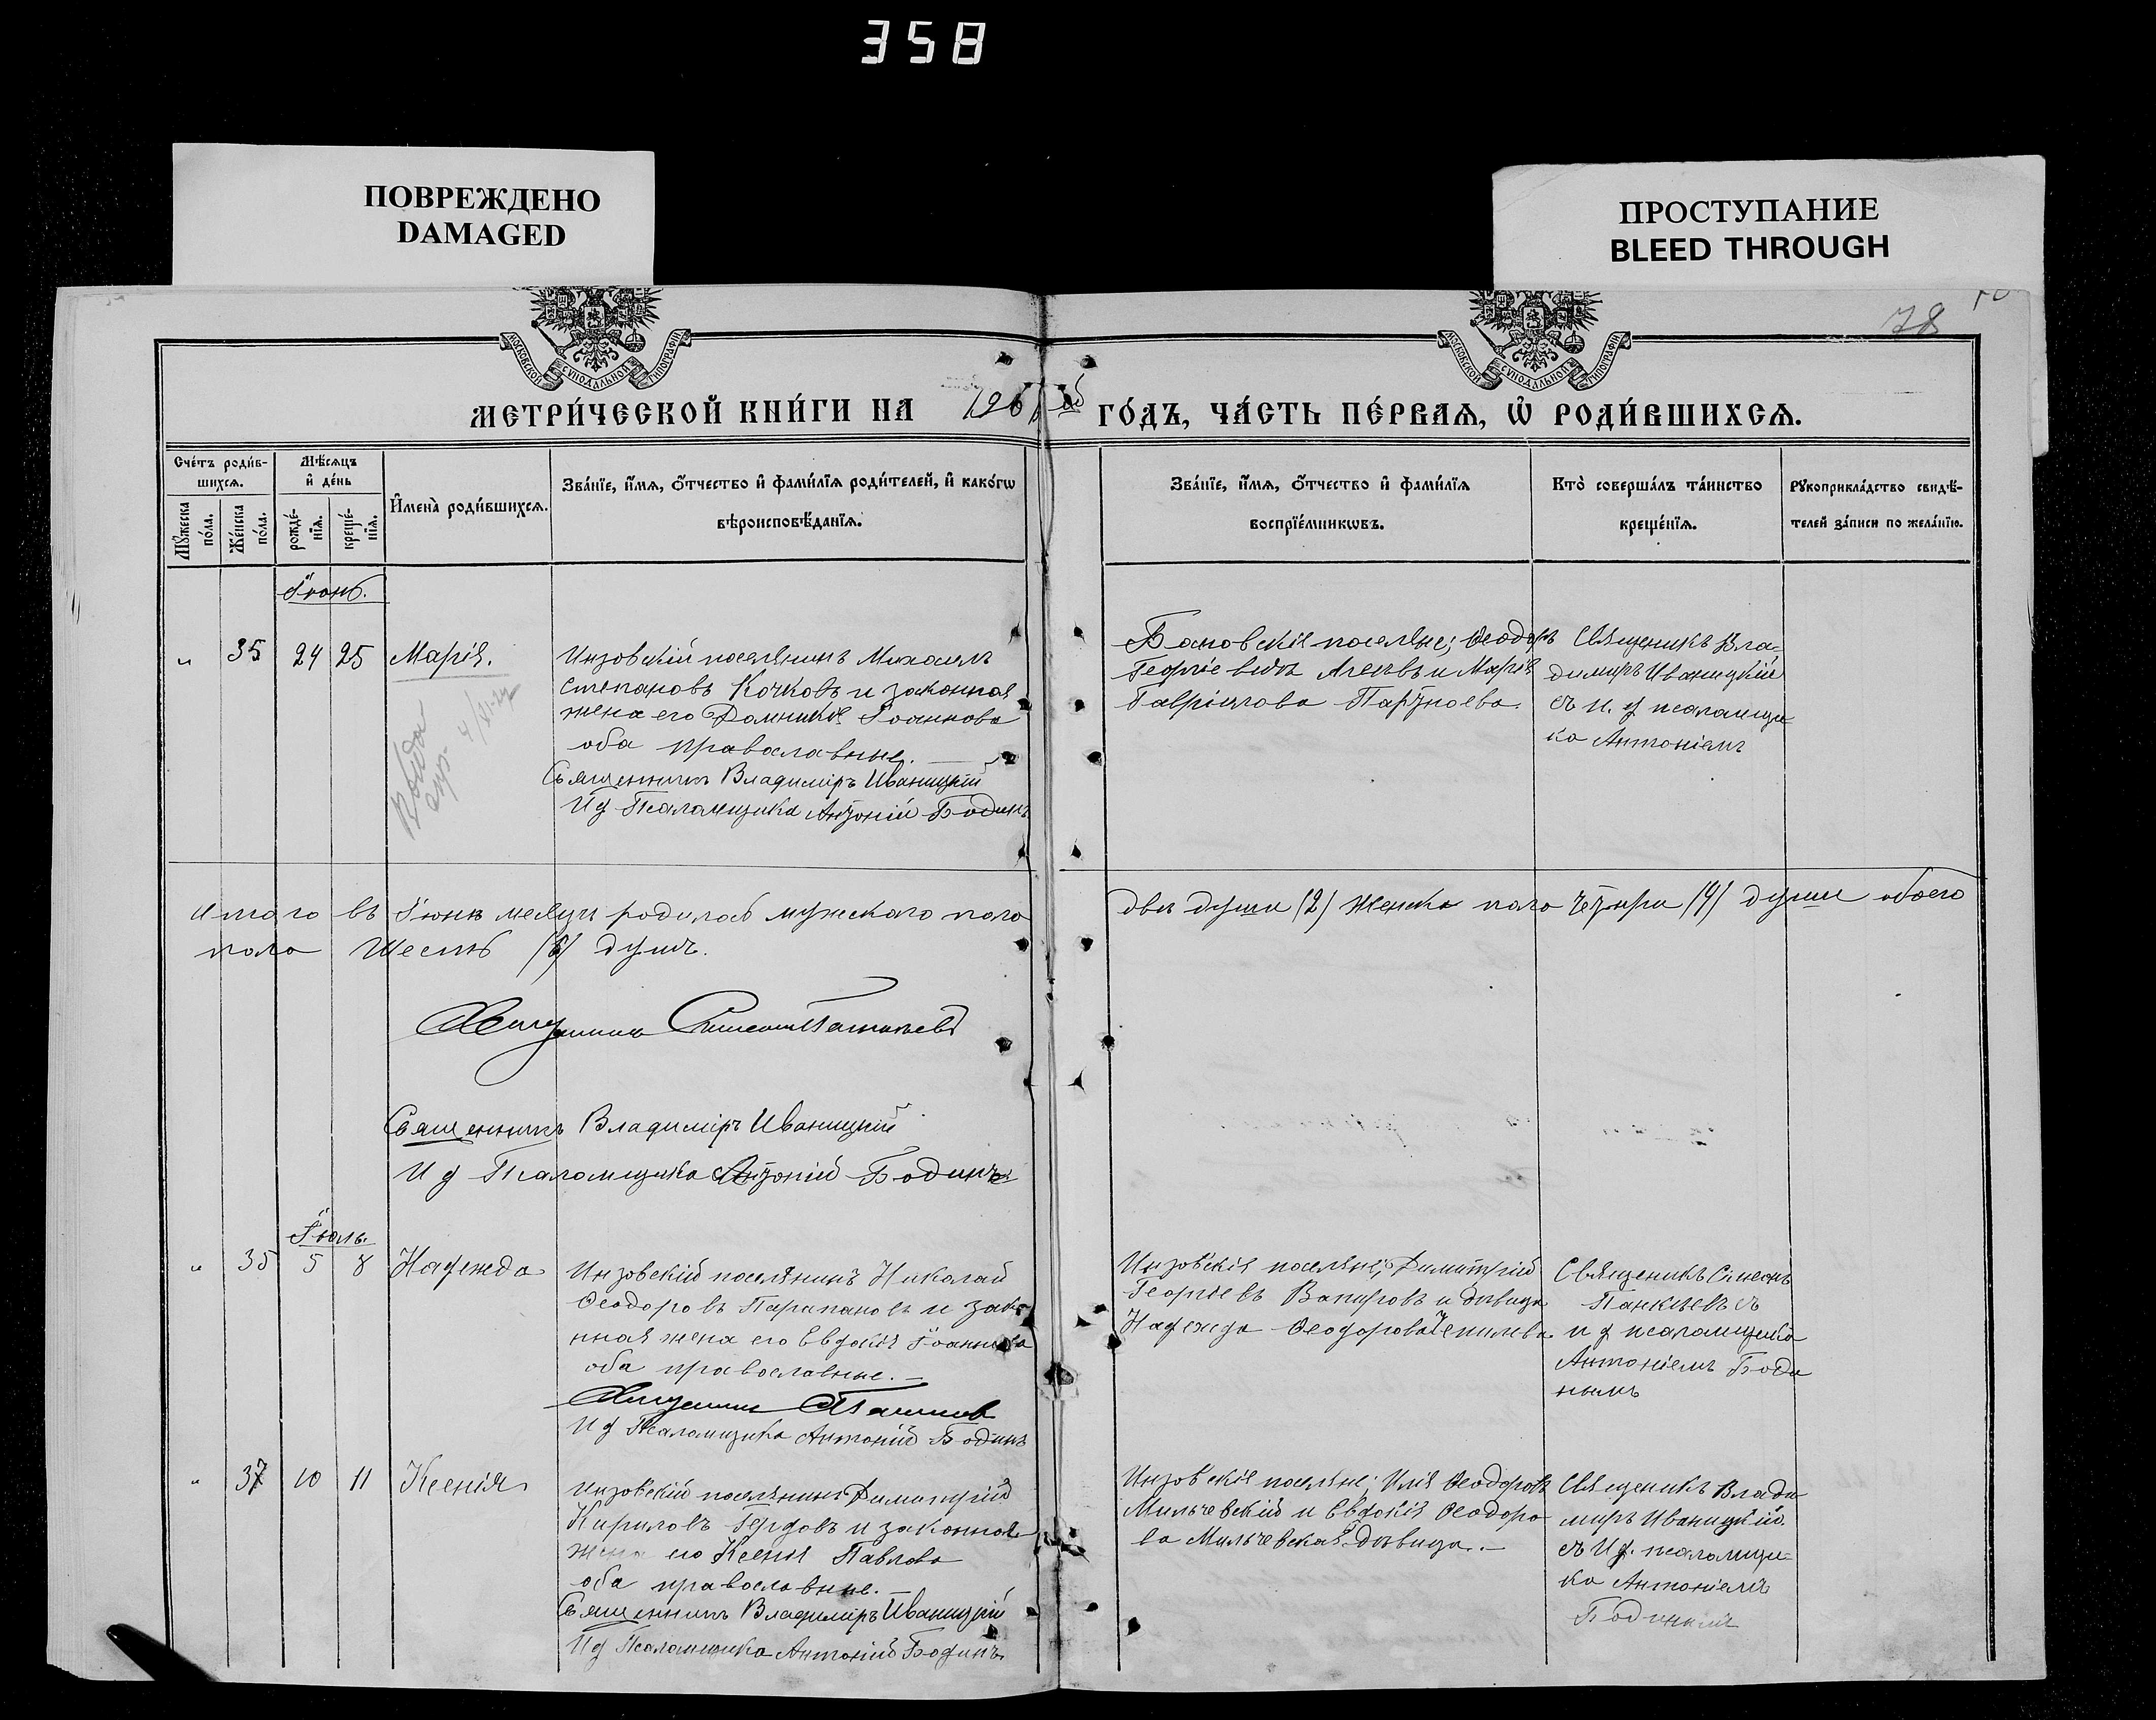 358
ПОВРЕЖДЕНО
DAMAGED
ПРОСТУПАНИЕ
BLEED THROUGH
78
МОСКОВСКОЙ СѴНОДАЛЬНОЙ ТИПОГРАФІИ
МОСКОВСКОЙ СѴНОДАЛЬНОЙ ТИПОГРАФІИ
МЕТРИ́ЧЕСКОЙ КНИ́ГИ НА
ГО́ДЪ, ЧА́СТЬ ПЕ́РВАѦ, Ѡ҆ РОДИ́ВШИХСѦ.
Сче́тъ роди́в-
шихсѧ.
Мꙋ́жеска по́ла.
Же́нска по́ла.
Мѣ́сѧцъ и҆ де́нь
рожде́-
нїѧ.
креще́-
нїѧ.
И҆мена̀ роди́вшихсѧ.
Зва́нїе, и҆́мѧ, ѻ҆́тчество и҆ фами́лїѧ роди́телей, и҆ како́гѡ
вѣроисповѣ́данїѧ.
Зва́нїе, и҆́мѧ, ѻ҆́тчество и҆ фами́лїѧ
воспрїе́мникѡвъ.
Кто̀ соверша́лъ та́инство
креще́нїѧ.
Рꙋкоприкла́дство свидѣ́-
телей за́писи по жела́нїю.
Іюнь.
" 35 24 25 Марія.
Инзовскій поселянинъ Михаилъ
Степановъ Кочковъ и законная
жена его Домникія Іоаннова
оба православные.
Священникъ Владиміръ Иваницкій
И д Псаломщика Антоній Бодинъ
поселяне; Ѳеодоръ
Георгіевичъ и Марія
Гавріилова
Священикъ Вла-
димиръ Иваницкій
съ и. д псаломщи
ка Антоніемъ
Итого въ Іюнѣ месяцѣ родилось мужского пола
двѣ души (2) женска пола четыри (4) души обоего
пола шесть (6) душъ.
Священникъ Владиміръ Иваницкій
И д Псаломщика Антоній Бодинъ
Іюль.
" 35 5 8 Надежда
Инзовскій поселянинъ Николай
Ѳеодоровъ Парапановъ и зако
нная жена его Евдокія Іоаннова
оба православные.
И д Псаломщика Антоній Бодинъ
Инзовскія поселяне; Димитрій
Георгіевъ и дѣвица
Надежда Ѳеодорова
Священикъ Сімеонъ
съ
и д псаломщика
Антоніемъ Боди
нымъ
" 37 10 11 Ксенія
Инзовскій поселянинъ Димитрій
Кириловъ и законная
жена его Ксенія Павлова
оба православные.
Священникъ Владиміръ Иваницкій
И д Псаломщика Антоній Бодинъ
Инзовскія поселяне; Илія Ѳеодоровъ
Мильчевскій и Евдокія Ѳеодоро
ва Мильчевская дѣвица.
Священикъ Влади
миръ Иваницкій.
съ И д. псаломщи-
ка Антоніемъ
Бодинымъ